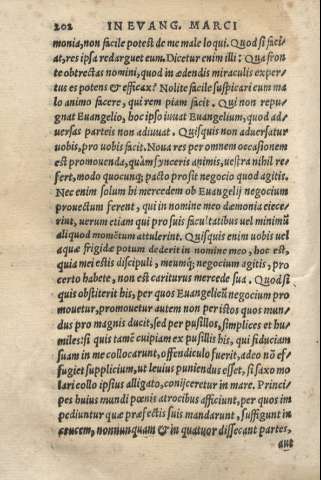 202 IN EVANG. MARCI
monia, non facile potest de me male loqui. Quod si faci-
at, res ipsa redarguet eum. Dicetur enim illi: Qua fron
te obtrectas nomini, quod in ædendis miraculis exper-
tus es potens & efficax? Nolite facile suspicari eum ma
lo animo facere, qui rem piam facit. Qui non repu-
gnat Euangelio, hoc ipso iuuat Euangelium, quod ad-
uersas parteis non adiuuat. Quisquis non aduersatur
uobis, pro uobis facit. Noua res per omnem occasionem
est promouenda, quàm synceris animis, uestra nihil re-
fert, modo quocunq; pacto prosit negocio quod agitis.
Nec enim solum hi mercedem ob Euangelij negocium
prouectum ferent, qui in nomine meo dæmonia eiece-
rint, uerum etiam qui pro suis facultatibus uel minimũ
aliquod momẽtum attulerint. Quisquis enim uobis uel
aquæ frigidæ potum dederit in nomine meo, hoc est,
quia mei estis discipuli, meumq; negocium agitis, pro
certo habete, non est cariturus mercede sua. Quod si
quis obstiterit his, per quos Euangelicũ negocium pro
mouetur, promouetur autem non per istos quos mun-
dus pro magnis ducit, sed per pusillos, simplices et hu-
miles: si quis tamẽ cuipiam ex pusillis his, qui fiduciam
suam in me collocarunt, offendiculo fuerit, adeo nõ ef-
fugiet supplicium, ut leuius puniendus esset, si saxo mo
lari collo ipsius alligato, conijceretur in mare. Princi-
pes huius mundi pœnis atrocibus afficiunt, per quos im
pediuntur quæ præfectis suis mandarunt, suffigunt in
crucem, nonnunquam & in quatuor dissecant partes,
aut